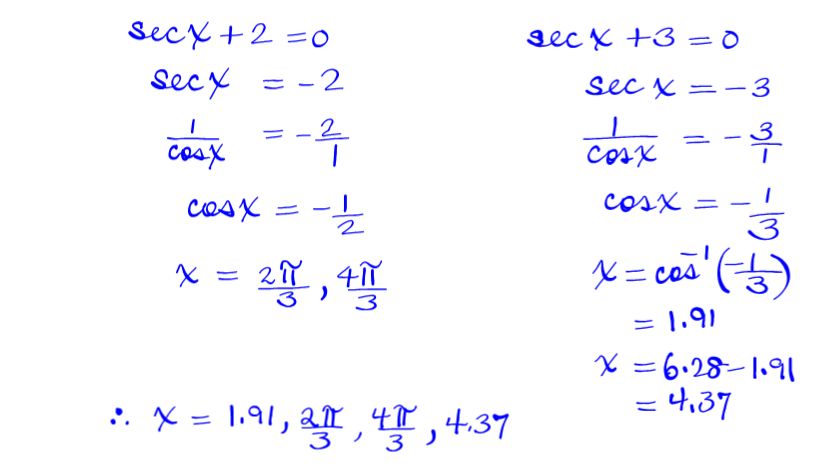 secx + 2 = 0
secx = -2
1/cosx = -2/1
cosx = -1/2
x = 2π/3, 4π/3
secx + 3 = 0
sec x = -3
1/cosx = -3/1
cosx = -1/3
x = cos⁻¹(-1/3)
= 1.91
x = 6.28-1.91
= 4.37
∴ x = 1.91, 2π/3, 4π/3, 4.37